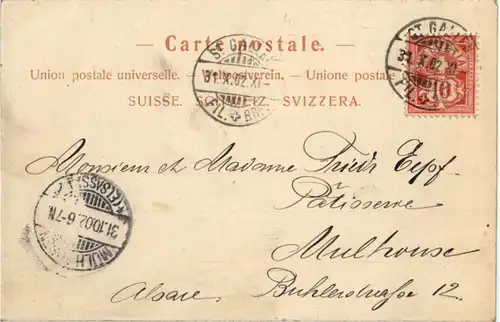 — Carte postale. —
Union postale universelle. — Weltpostverein. — Unione postale
SUISSE. SCHWEIZ. SVIZZERA.
ST. GALLEN
31.X.02.XI-
FIL.
ST. GALLEN
31.X.02.XI-
FIL.
10
(ELSASS)
31.10.02.6-7N.
MÜLHAUSEN
Monsieur et Madame Friedr Epf
Pâtisserie
Mulhouse
Alsace. Buhlerstrasse 12.